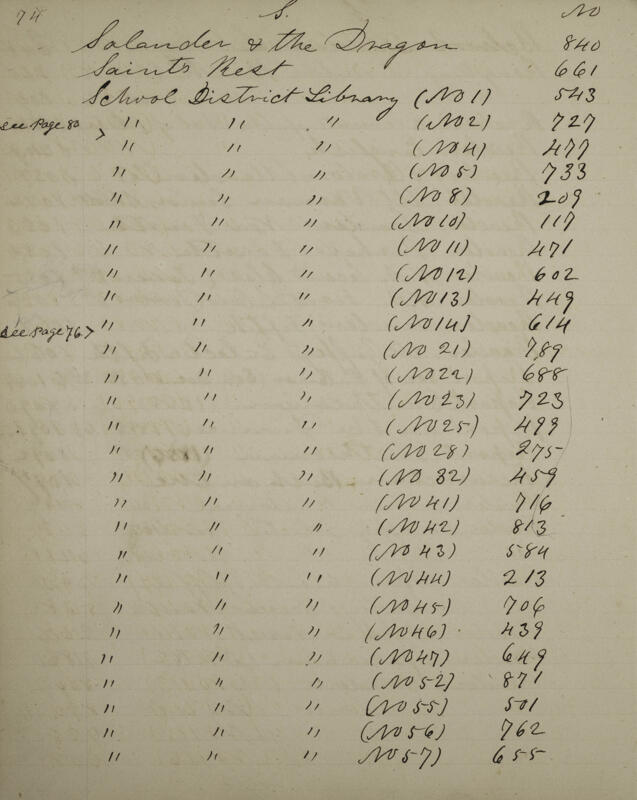 74 S. No
Salander & the Dragon 840
Saints Rest 661
School District Library (No 1) 543
see Page 80 > " " " (No 2) 727
" " " (No 4) 477
" " " (No 5) 733
" " " (No 8) 209
" " " (No 10) 117
" " " (No 11) 471
" " " (No 12) 602
" " " (No 13) 449
see Page 76 > " " " (No 14) 614
" " " (No 21) 789
" " " (No 22) 688
" " " (No 23) 723
" " " (No 25) 499
" " " (No 28) 275
" " " (No 32) 459
" " " (No 41) 716
" " " (No 42) 813
" " " (No 43) 584
" " " (No 44) 213
" " " (No 45) 706
" " " (No 46) 439
" " " (No 47) 649
" " " (No 52) 871
" " " (No 55) 501
" " " (No 56) 762
" " " No 57) 655